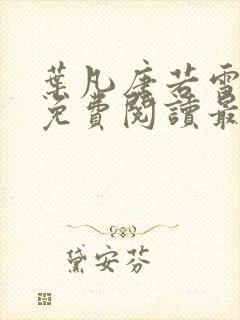 葉凡唐若雪
免費閱讀最
黛安芬